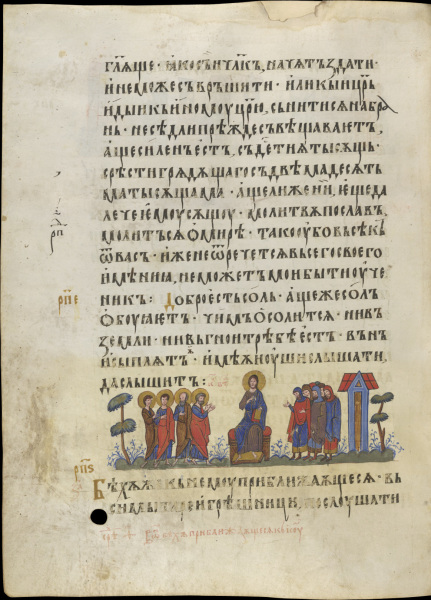 гл҃ѧще · ꙗко съ чл҃къ, начѧтъ здати ·
и не може съвръшити · или кыи цр҃ь
иды къ иномоу цр҃ю, сънити сѧ на бра
нь · не сѣдъ ли прѣжде съвѣщаваетъ,
аще силенъ естъ, съ десѧтиѫ тысѫщь ·
срѣсти грѧдѫщаго съ двѣма десѧть
ма тысѫщама · аще ли же ни, и еще да
лече емоу сѫщоу · молитвѫ пославъ,
молитъ сѧ о мирѣ · тако оубо въсѣкъ
ѿ васъ · иже не ѡтречетъ сѧ всего своего
имѣниа, не можетъ мои быти оуче
рп҃е
никъ : Добро естъ соль · аще же соль
обоуꙗетъ · чимъ осолитсѧ · ни въ
земли · ни въ гнои трѣбѣ естъ · вънъ
исыплѧтъ · имѣѧи оуши слышати,
да слышитъ :
рп҃ѕ
Бѣхѫ же къ немоу приближаѫще сѧ · въ
си мытаре и грѣшници, послоушати